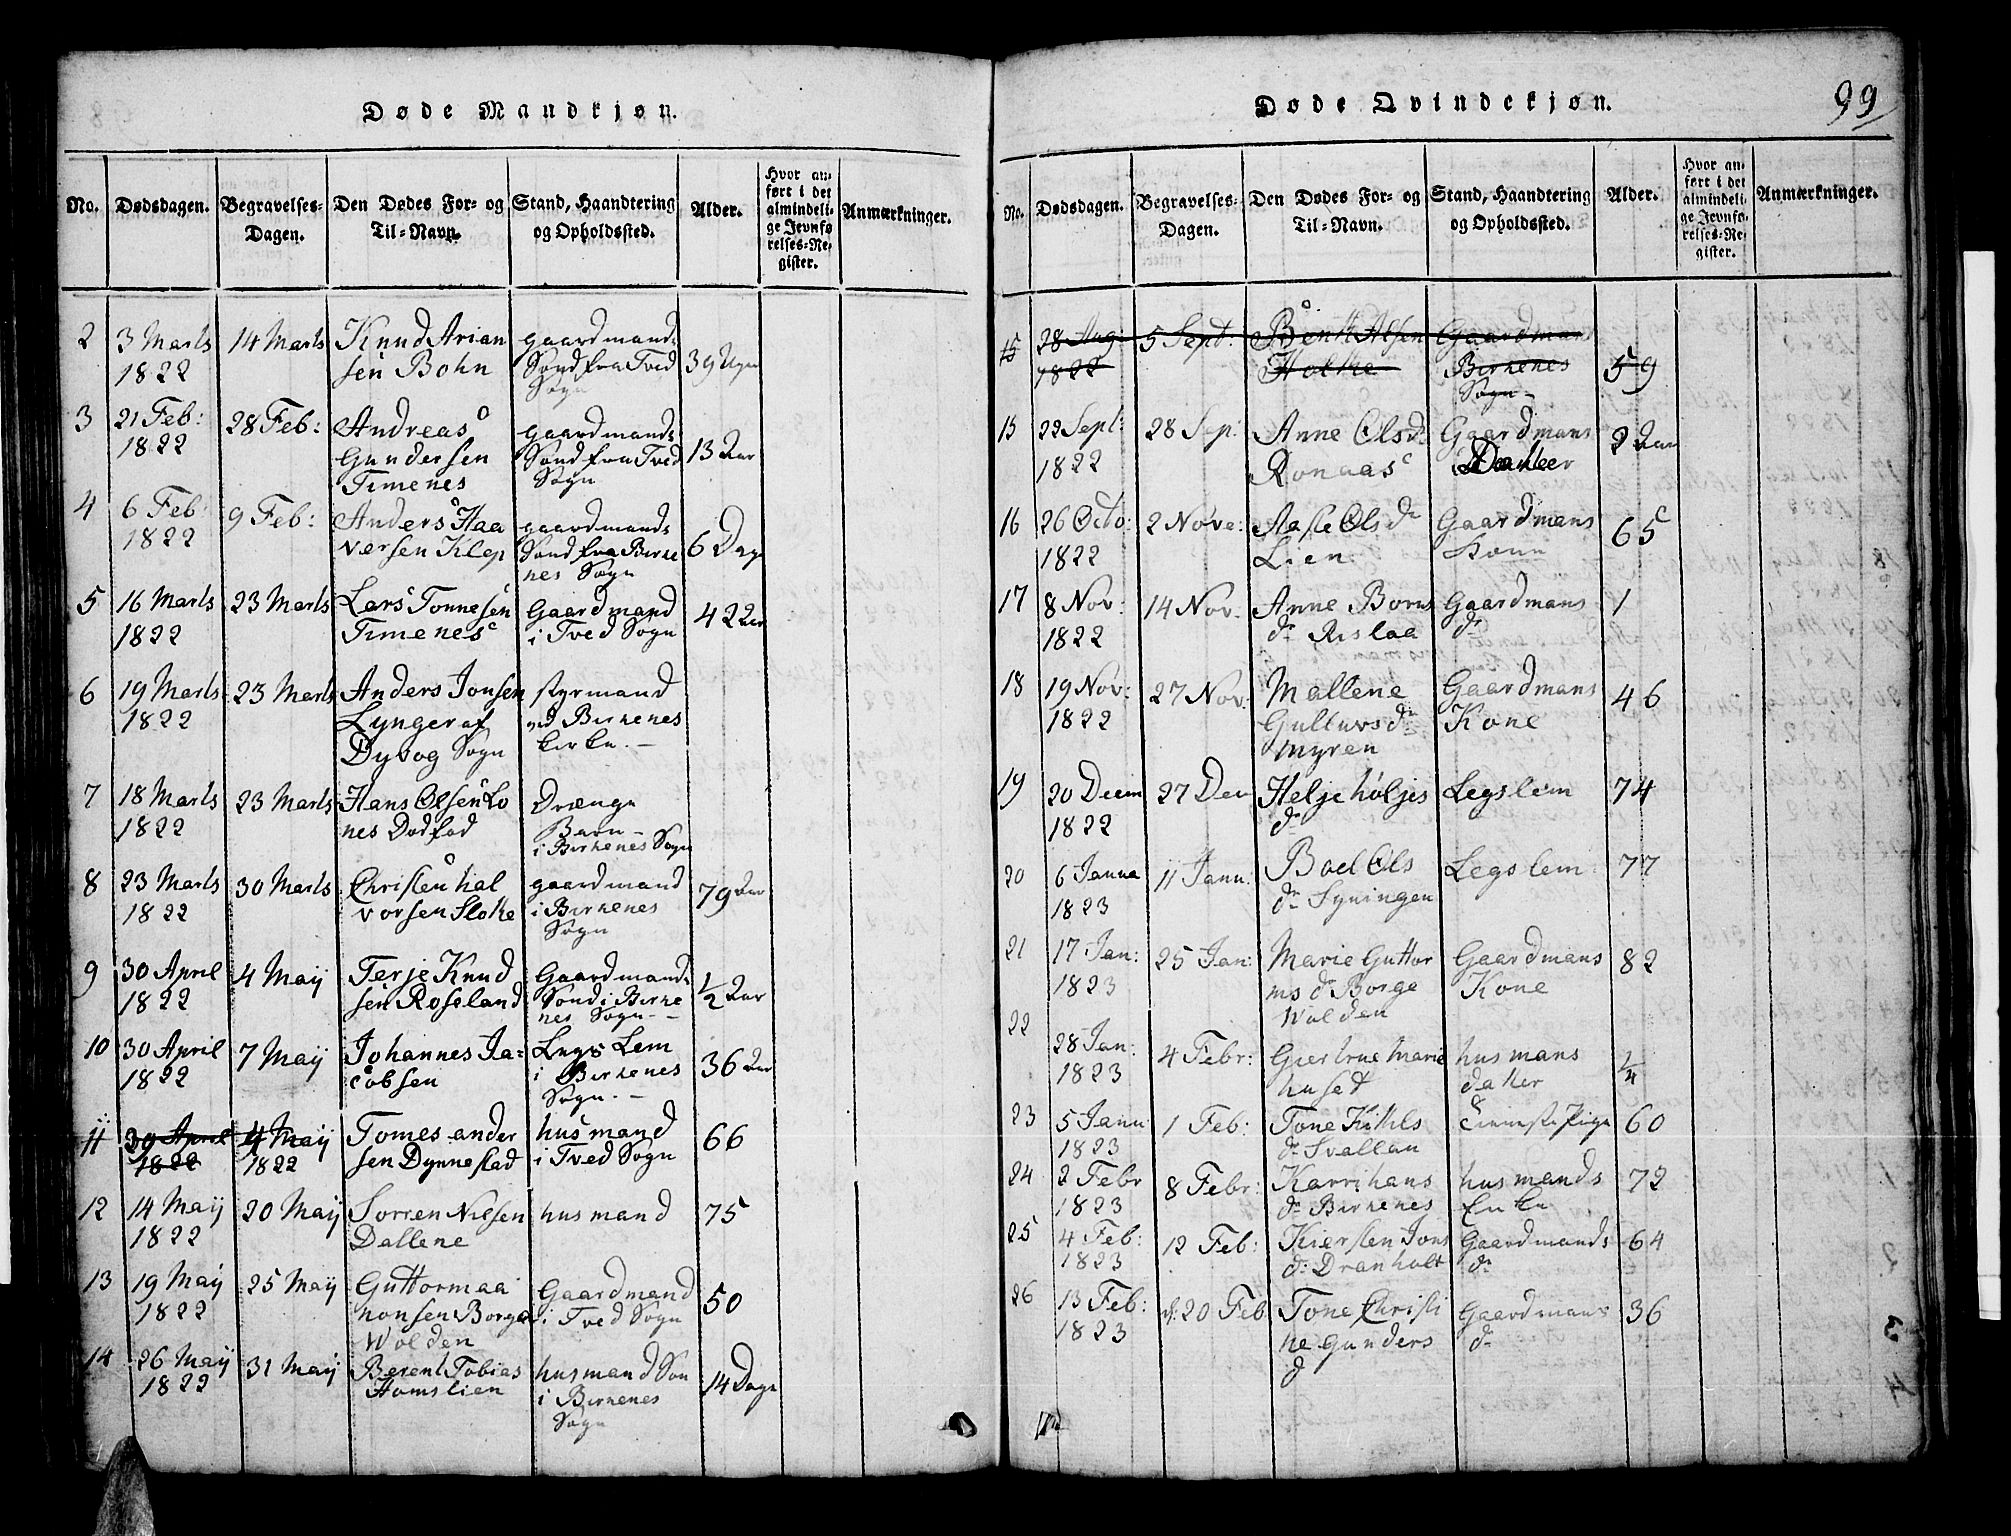 Døde Mandkjøn.
No.
Dødsdagen.
Begravelses-
Dagen.
Den Dødes For- og
Til-Navn.
Stand, Haandtering
og Opholdssted.
Alder.
Hvor an-
ført i det
almindeli-
ge Jevnfø-
relses-Re-
gister.
Anmærkninger.
2
3 Marts
1822
14 Marts
Knud Arian
sen Bohn
gaardmands
Sønd fra Tved
Sogn
39 Uger
3
21 Feb:
1822
28 Feb:
Andreas
Gundersen
Timenes
gaardmands
Sønd fra Tved
Sogn
13 Aar
4
6 Feb:
1822
9 Feb:
Anders Haa
versen Klep
gaardmands
Sønd fra Birke
nes Sogn
6 Dage
5
16 Marts
1822
23 Marts
Lars Tonnesen
Timenes
Gaardmand
i Tved Sogn
42 Aar
6
19 Marts
1822
23 Marts
Anders Jonsen
Lynger af
Dybog Sogn
styrmand
ved Birkenes
kirke. -
7
18 Marts
1822
23 Marts
Hans Olsen Lo
nes Dødfød
Drænge
Barn -
i Birkenes Sogn
8
23 Marts
1822
30 Marts
Christen hal
vorsen Stoke
gaardmand
i Birkenes
Sogn
79 Aar
9
30 April
1822
4 Maij
Terje Knud
sen Rosseland
Gaardmands
Sønd i Birke
nes Sogn. -
1/2 Aar
10
30 April
1822
7 Maij
Johannes Ja=
cobsen
Legs Lem
i Birkenes
Sogn. -
36 Aar
11
30 April
1822
4 Maij
1822
Tomes ander
sen Dynnestad
husmand
i Tved Sogn
66
12
14 Maij
1822
20 Maij
Sorren Nilsen
Dallene
husmand
75
13
19 Maij
1822
25 Maij
Guttormaa
nonsen Borge
Wolden
Gaardmand
i Tved Sogn
50
14
26 Maij
1822
31 Maij
Berent Tobias
Homslien
husmand Søn
i Birkenes
Sogn
14 Dage
Døde Qvindekjøn.
99
No.
Dødsdagen.
Begravelses-
Dagen.
Den Dødes For- og
Til-Navn.
Stand, Haandtering
og Opholdssted.
Alder.
Hvor an-
ført i det
almindeli-
ge Jevnfø-
relses-Re-
gister.
Anmærkninger.
15
28 Aug:
1822
5 Sept:
Gaardmans
Birkenes
Sogn -
59
15
22 Sept:
1822
28 Sep:
Anne Olsdr
Ronaas
Gaardmans
Datter
2 Aar
16
26 Octo:
1822
2 Nove:
Aasle Olsdr
Lien
Gaardmans
Konn
65
17
8 Nov:
1822
14 Nov.
Anne Borns
dr Rislaa
Gaardmans
dr
1
18
19 Nov:
1822
27 Nov.
Mallene
Gulluvsdr
Myren
Gaardmans
Kone
46
19
20 Decem
1822
27 Dec
Helje høljes
dr
Legslem
74
20
6 Janua
1823
11 Janu:
Boel Ols
dr Syningen
Legslem
77
21
17 Jan:
1823
25 Jan:
Marie Guttor
ms dr Borge
Wolden
Gaardmans
Kone
82
22
28 Jan:
1823
4 Febr:
Giertrue Marie
huset
husmans
dater
1/4
23
5 Janu
1823
1 Feb:
Tone Kittils
dr Svallan
tieneste Pige
60
24
2 Febr
1823
8 Febr:
Karri hans
dr Birkenes
husmands
Enke
72
25
4 Feb:
1823
12 Feb:
Kiersten Jons
dr Dranholt
Gaardmands
dr
64
26
13 Feb:
1823
20 Feb
Tone Christi
ne Gunders
d
Gaardmans
dr
36